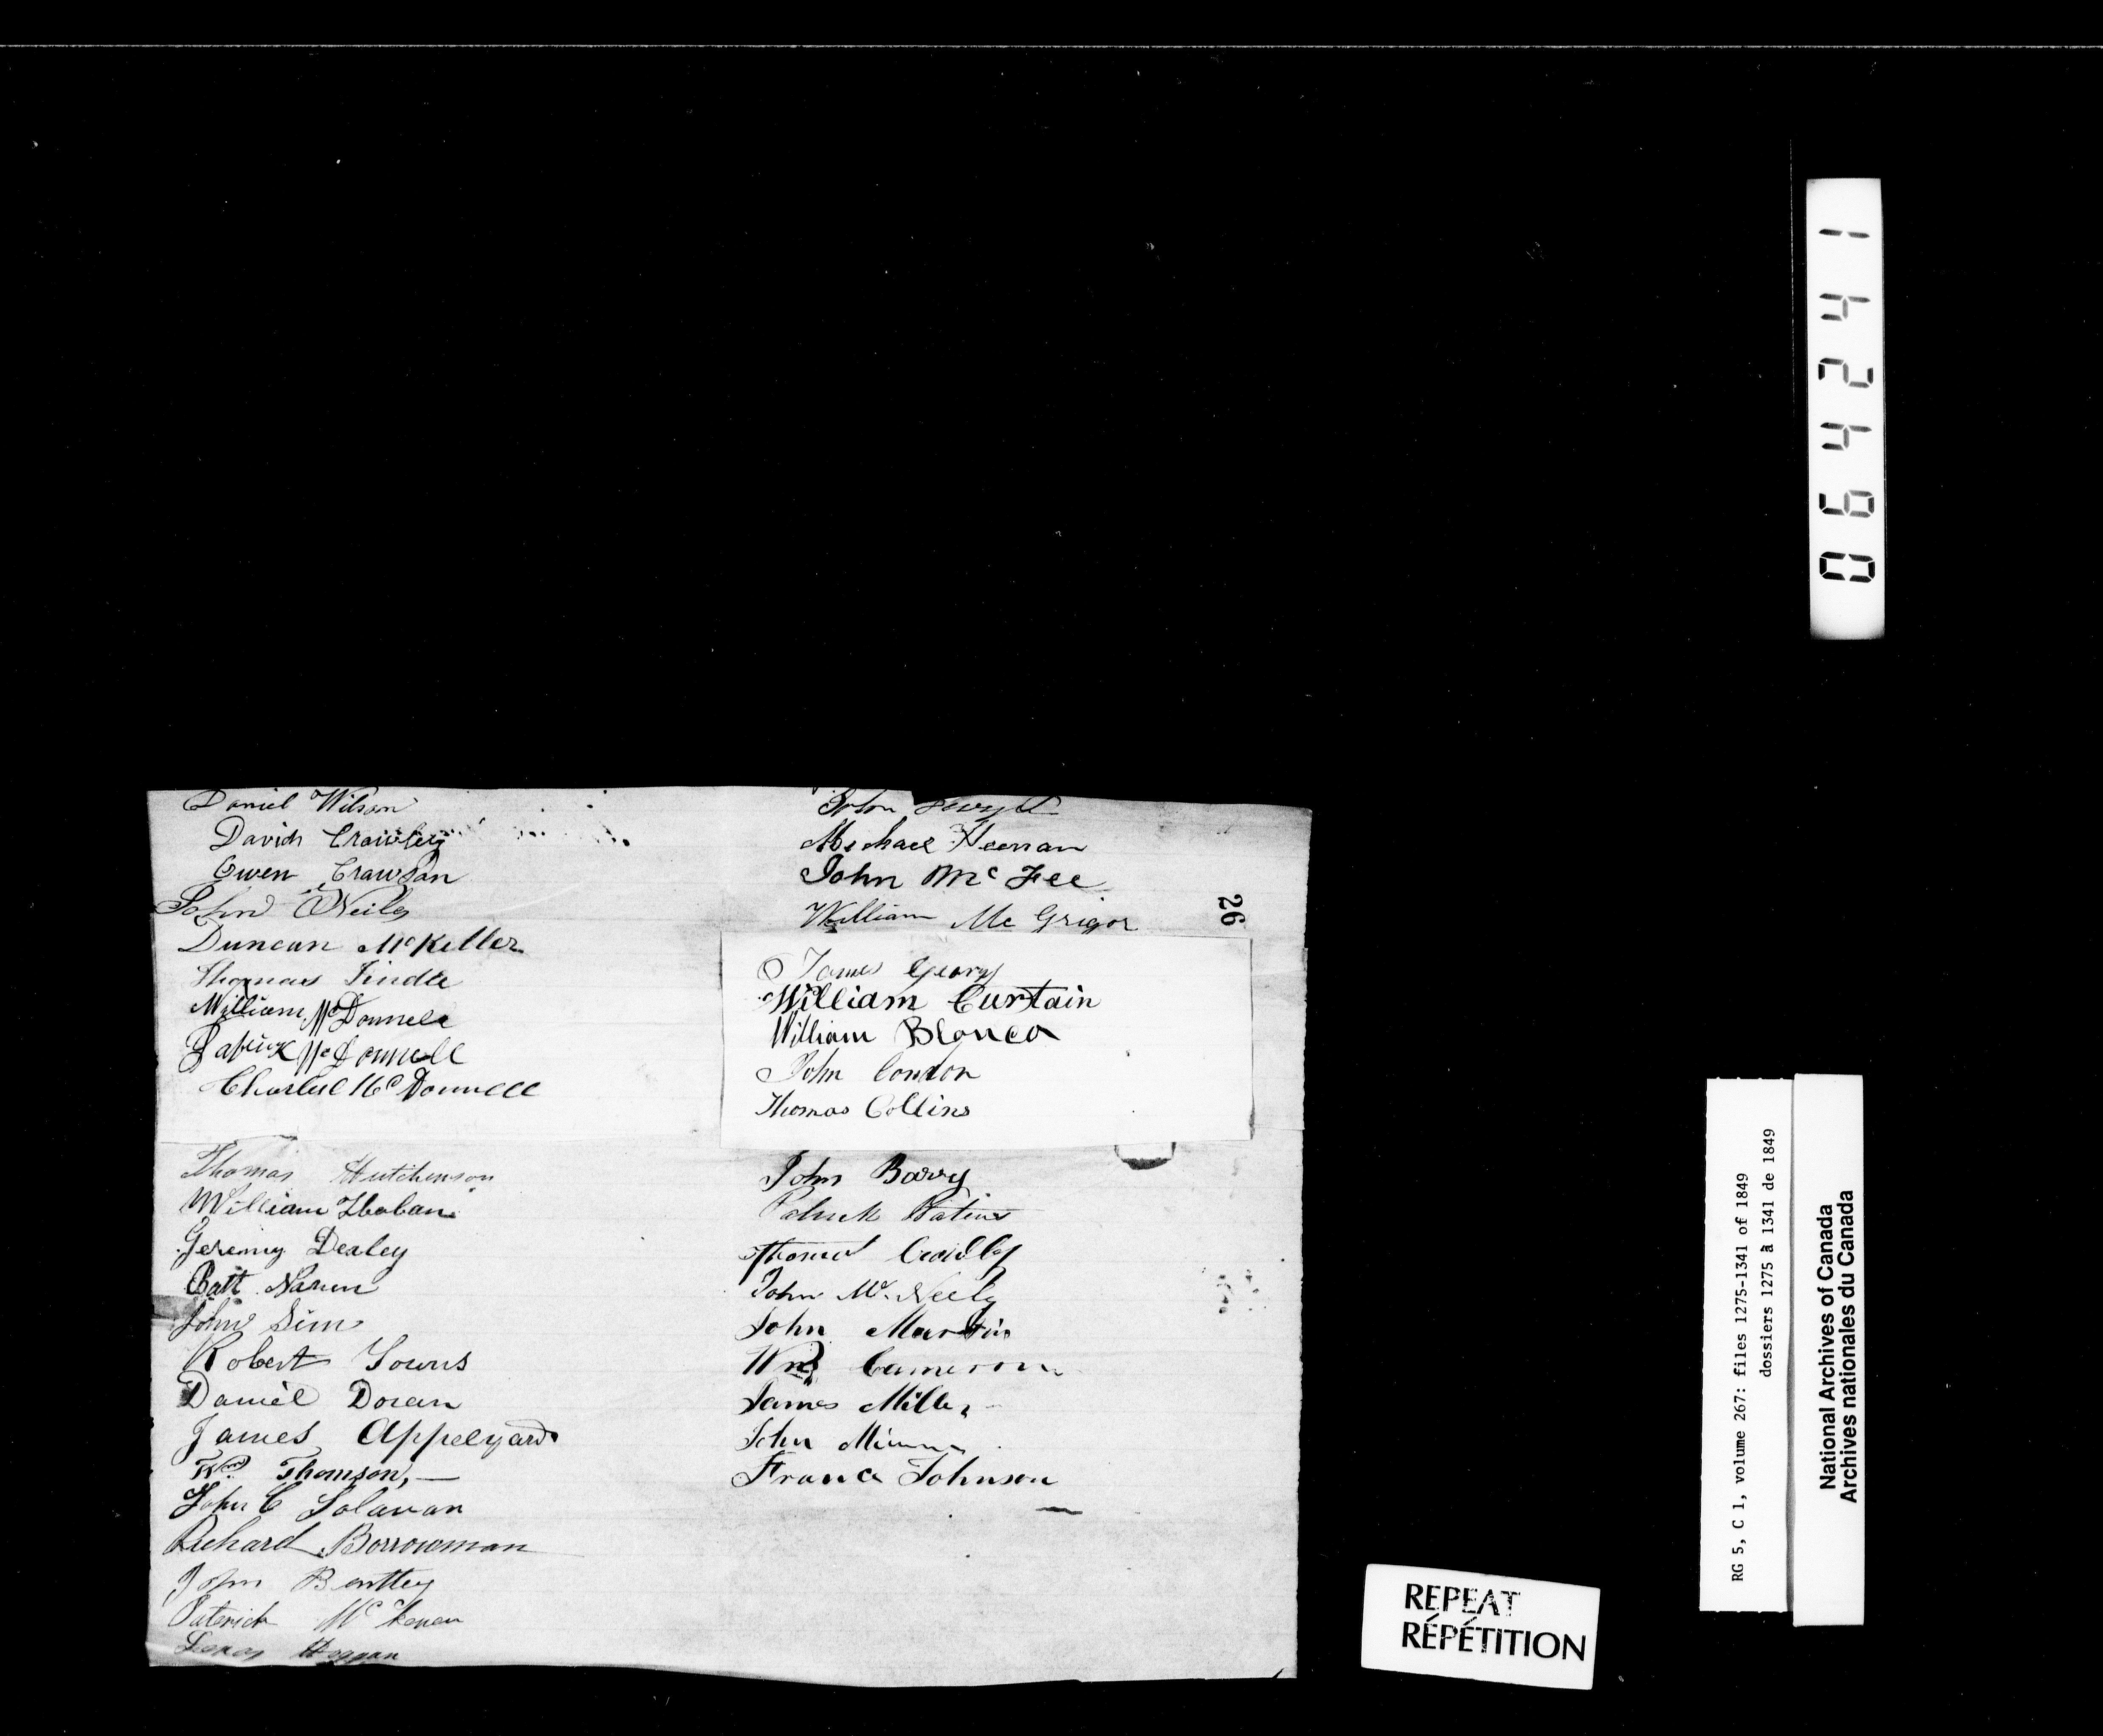 Daniel Wilson
David Crawley
Owen Crawson
John O'Neily
Duncan McKeller
Thomas Tindle
William McDonnell
Patrick McDonnell
Charlul McDonnell
Thomas Hutchenson
William
Geremy Dealey
Batt Naren
John Sim
Robert Towns
Daniel Doran
James Appelyard
Wm Thomson,
John C Solavan
Richard Borrowman
John Benttey
Paterick Mc
Hoggan
John
Michael Heenan
John Mc Fee
William Mc Grigor
26
James Geary
William Curtain
William Blanca
John Condon
Thomas Collins
John Barry
Patrick
John Mc Neely
John Martin
Wm Cameron
James Miller
John
Franca Johnson
064241
RG 5, C 1, volume 267: files 1275-1341 of 1849
dossiers 1275 à 1341 de 1849
National Archives of Canada
Archives nationales du Canada
REPEAT
RÉPÉTITION